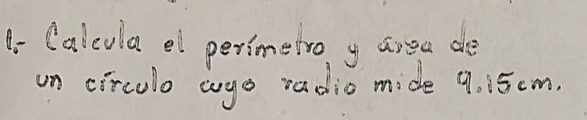 1.- Calcula el perímetro y área de
un círculo cuyo radio mide 9.15cm.